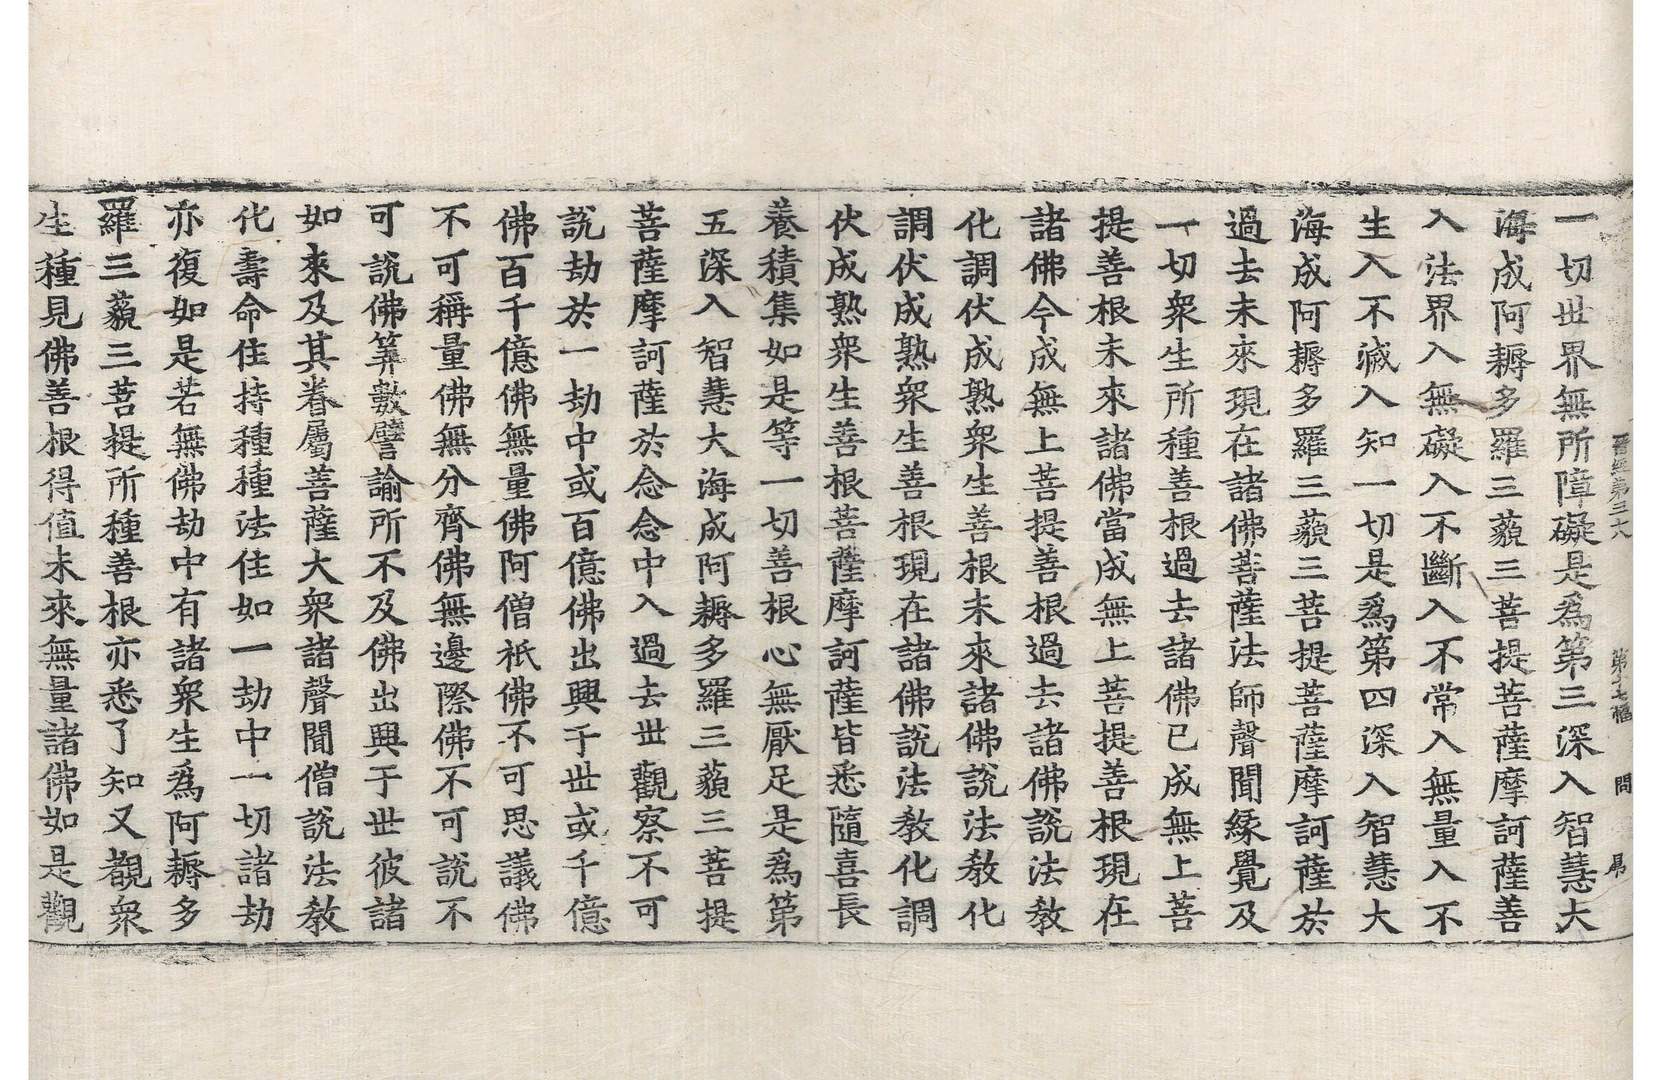 晉經第三六 第十七幅 問
一切世界無所障礙是爲第三深入智慧大
海成阿耨多羅三藐三菩提菩薩摩訶薩善
入法界入無礙入不斷入不常入無量入不
生入不滅入知一切是爲第四深入智慧大
海成阿耨多羅三藐三菩提菩薩摩訶薩於
過去未來現在諸佛菩薩法師聲聞緣覺及
一切衆生所種善根過去諸佛已成無上菩
提善根未來諸佛當成無上菩提善根現在
諸佛今成無上菩提善根過去諸佛說法教
化調伏成熟衆生善根未來諸佛說法教化
調伏成熟衆生善根現在諸佛說法教化調
伏成熟衆生善根菩薩摩訶薩皆悉隨喜長
養積集如是等一切善根心無厭足是爲第
五深入智慧大海成阿耨多羅三藐三菩提
菩薩摩訶薩於念念中入過去世觀察不可
說劫於一劫中或百億佛出興于世或千億
佛百千億佛無量佛阿僧祇佛不可思議佛
不可稱量佛無分齊佛無邊際佛不可說不
可說佛筭數譬諭所不及佛出興于世彼諸
如來及其眷屬菩薩大衆諸聲聞僧說法教
化壽命住持種種法住如一劫中一切諸劫
亦復如是若無佛劫中有諸衆生爲阿耨多
羅三藐三菩提所種善根亦悉了知又觀衆
生種見佛善根得值未來無量諸佛如是觀